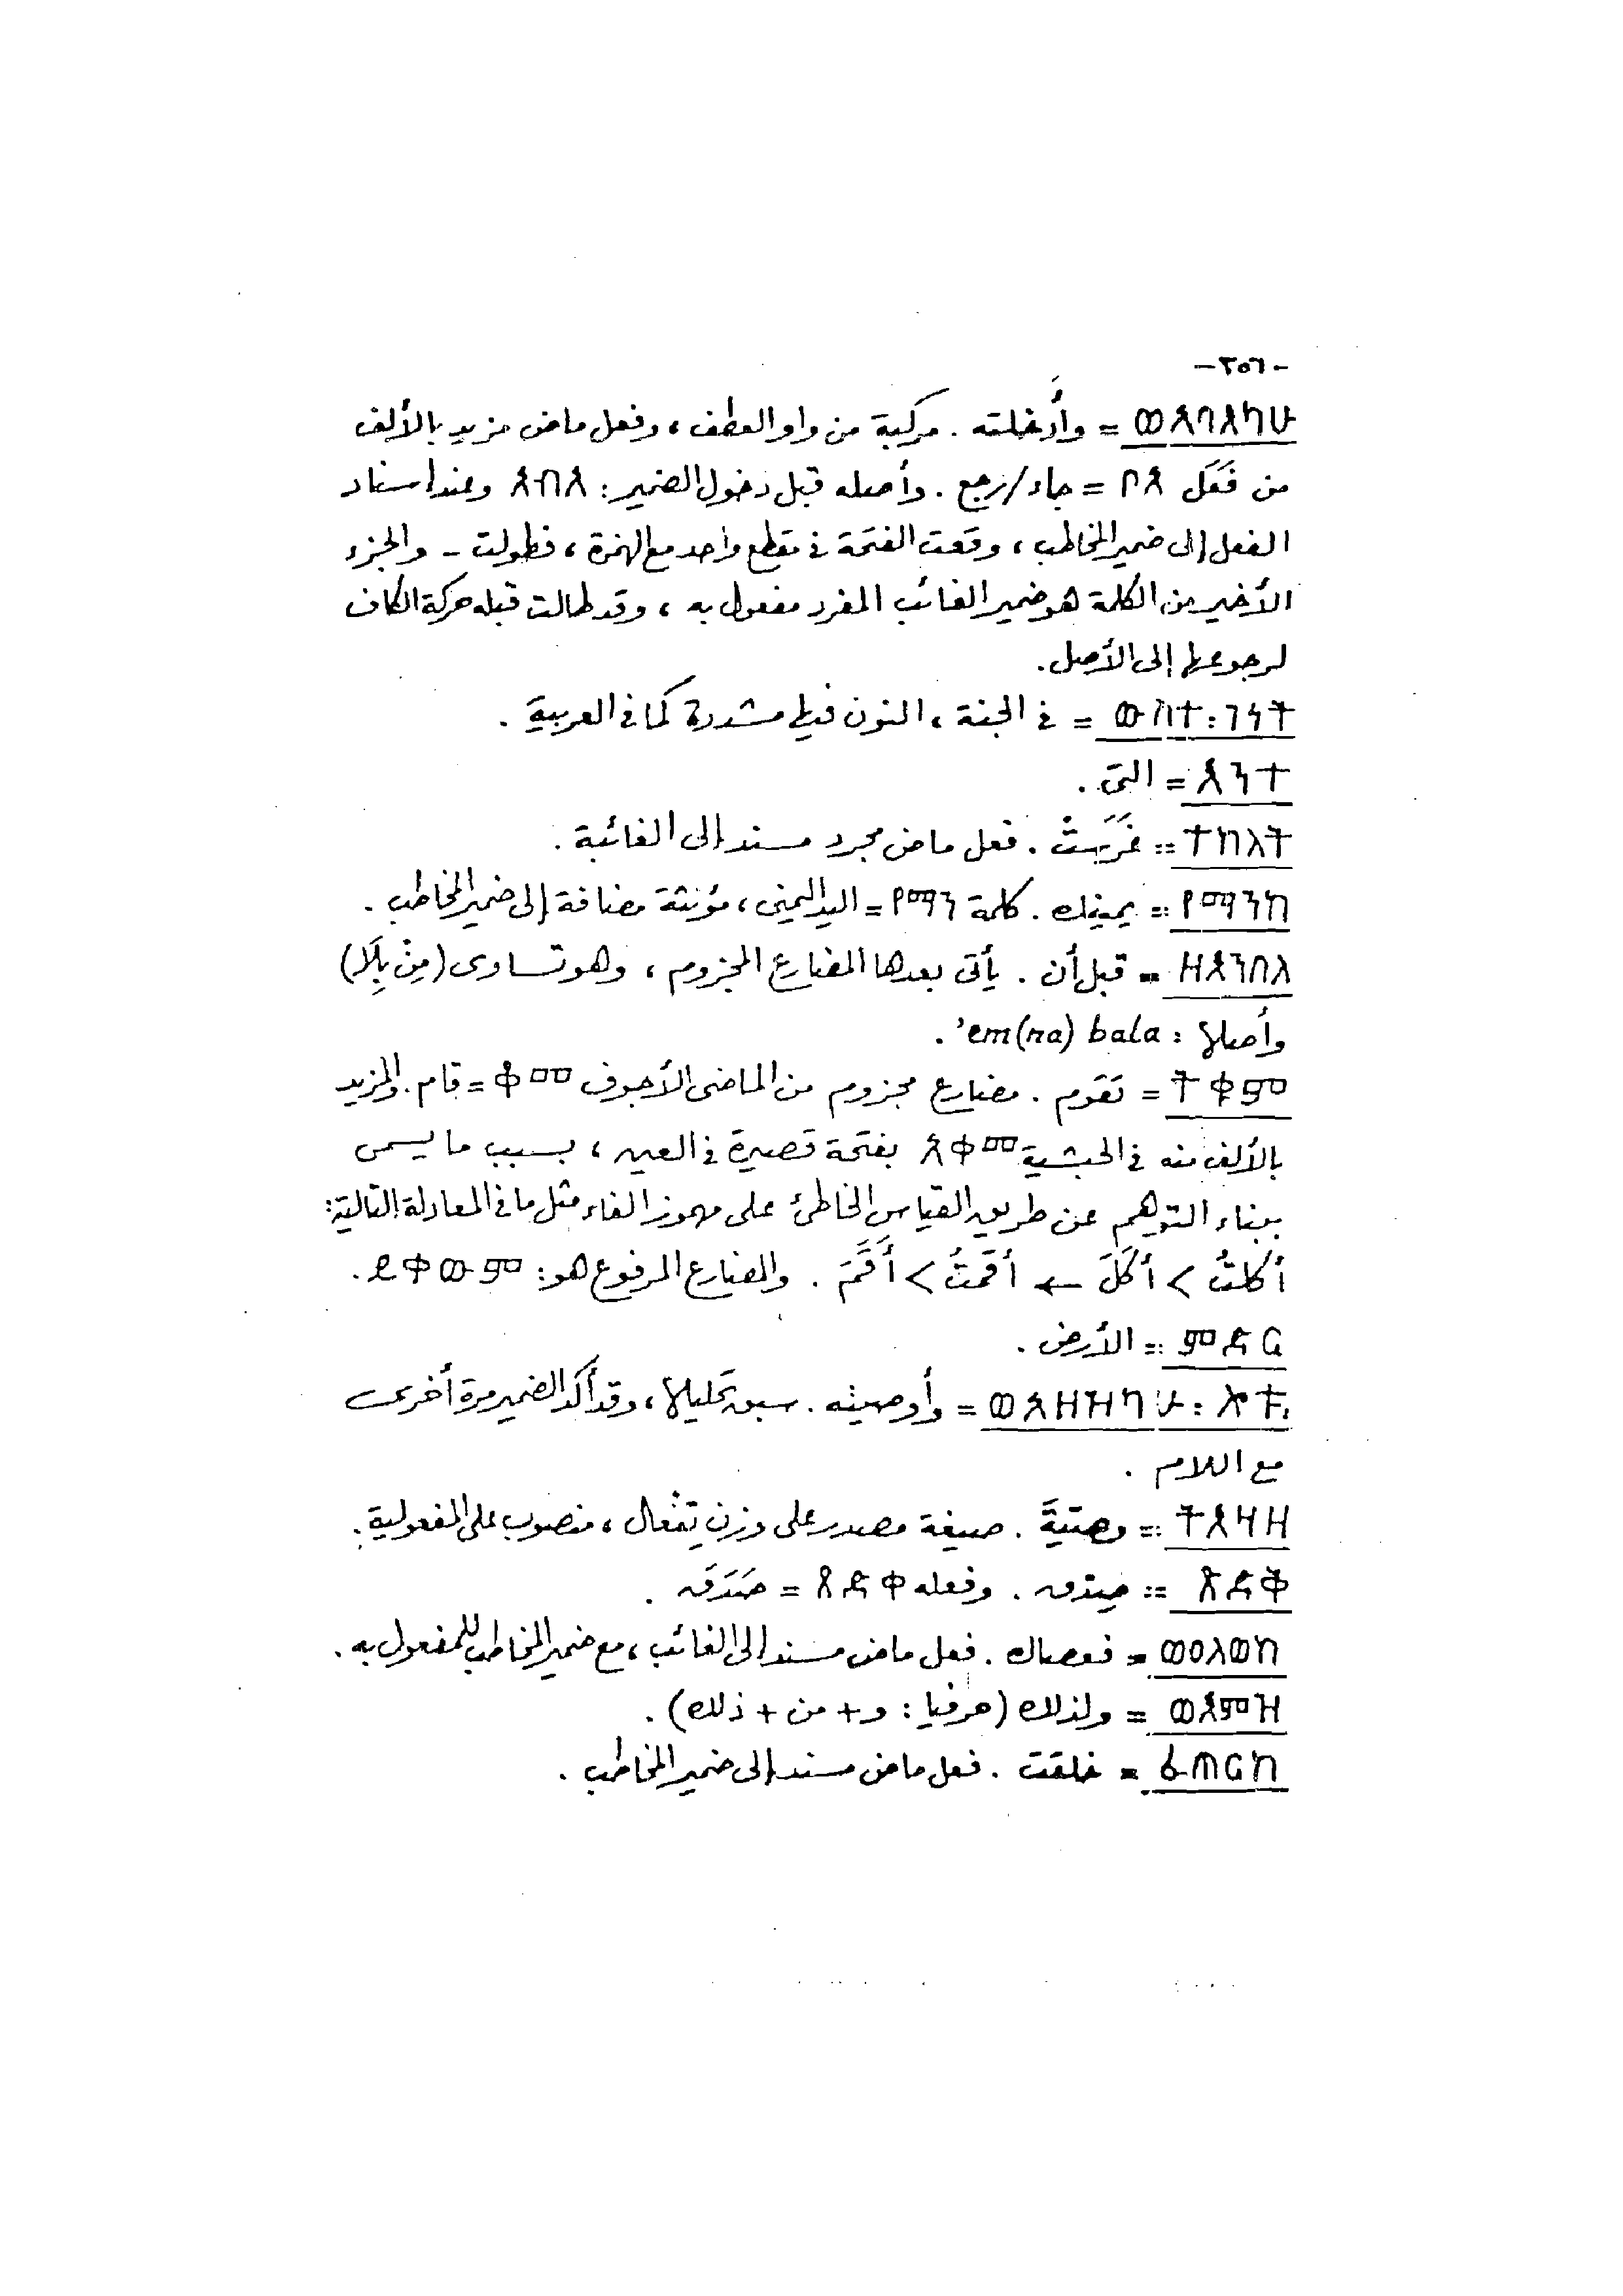 -٢٥٦-
ወአባእካሁ = وأَدخلته . مركبة من واو العطف ، وفعل ماض مزيد بالألف
من فَعَل ቦአ = جاء/رجع . وأصله قبل دخول الضمير : አብአ وعند اسناد
الفعل إلى ضمير المخاطب ، وقعت الفتحة فى مقطع واحد مع الهمزة ، فطولت - والجزء
الأخير من الكلمة هو ضمير الغائب المفرد مفعول به ، وقد طالت قبله حركة الكاف
لرجوعها إلى الأصل.
ውስተ : ገነት = فى الجنة ، النون فيها مشددة كما فى العربية .
እንተ = التى .
ተከለት = غَرَسَتْ . فعل ماض مجرد مسند إلى الغائبة .
የማንከ = يمينك . كلمة የማን = اليد اليمنى ، مؤنثة مضافة إلى ضمير المخاطب .
ዘእንበለ = قبل أن . يأتى بعدها المضارع المجزوم ، وهو تساوى (مِنْ بَلَا)
وأصلها : ’em(na) bala .
ትቁም = تقوم . مضارع مجزوم من الماضى الأجوف ቆመ = قام . والمزيد
بالألف منه فى الحبشية አቀመ بفتحة قصيرة فى العين ، بسبب ما يسمى
ببناء التوهم عن طريق القياس الخاطئ على مهموز الفاء مثل ما فى المعادلة التالية :
أكلتُ > أكَلَ ← أقمتُ > أَقَمَ . والمضارع المرفوع هو : ይቀውም .
ምድር = الأرض .
ወአዘዝካሁ : ሎቱ = وأوصيته . سبق تحليلها ، وقد أكد الضمير مرة أخرى
مع اللام .
ትእዛዘ = وصيّةً . صيغة مصدر على وزن تِفْعال ، منصوب على المفعولية .
ጽድቅ = صِدق . وفعله ጸድቀ = صَدَقَ .
ወዐለወከ = فعصاك . فعل ماض مسند إلى الغائب ، مع ضمير المخاطب للمفعول به .
ወእምዝ = ولذلك (حرفيا : و + من + ذلك) .
ፈጠርከ = خلقت . فعل ماض مسند إلى ضمير المخاطب .